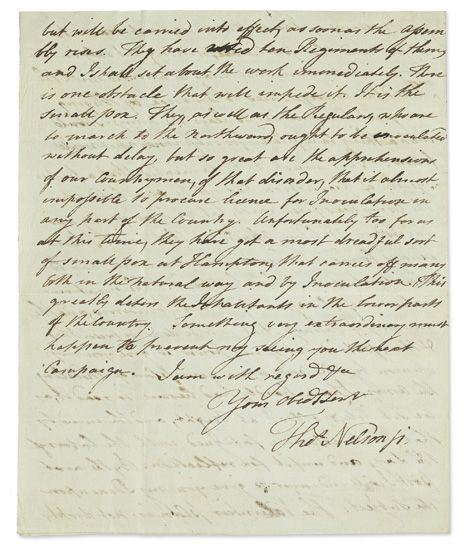 but will be carried into effect, as soon as the assem
bly rises. They have voted ten Regiments of them,
and I shall set about the work immediately. There
is one obstacle that will impede it. It is the
small pox. They, as well as the Regulars, who are
to march to the Northward ought to be inoculated
without delay, but so great are the apprehensions
of our Countrymen, of that disorder, that it almost
impossible to procure licence for Inoculation in
any part of the Country. Unfortunately too for us
at this time, they have got a most dreadful sort
of small pox at Hampton, that carries off many
both in the natural way and by Inoculation. This
greatly deters the Inhabitants in the lower parts
of the Country. Something very extraordinary must
happen to prevent my seeing you the next
Campaign. I am with regard &ca
Your obed Servt
Thos Nelson jr.